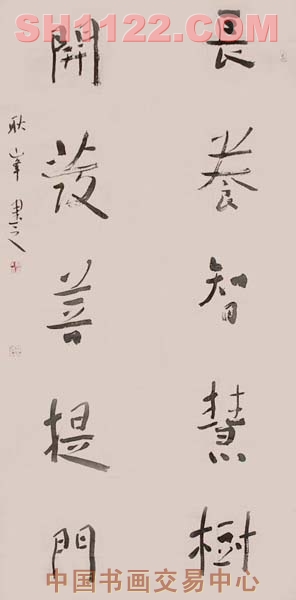 SH1122.COM
長養智慧樹
開發菩提門
耿峯墨之
中国书画交易中心